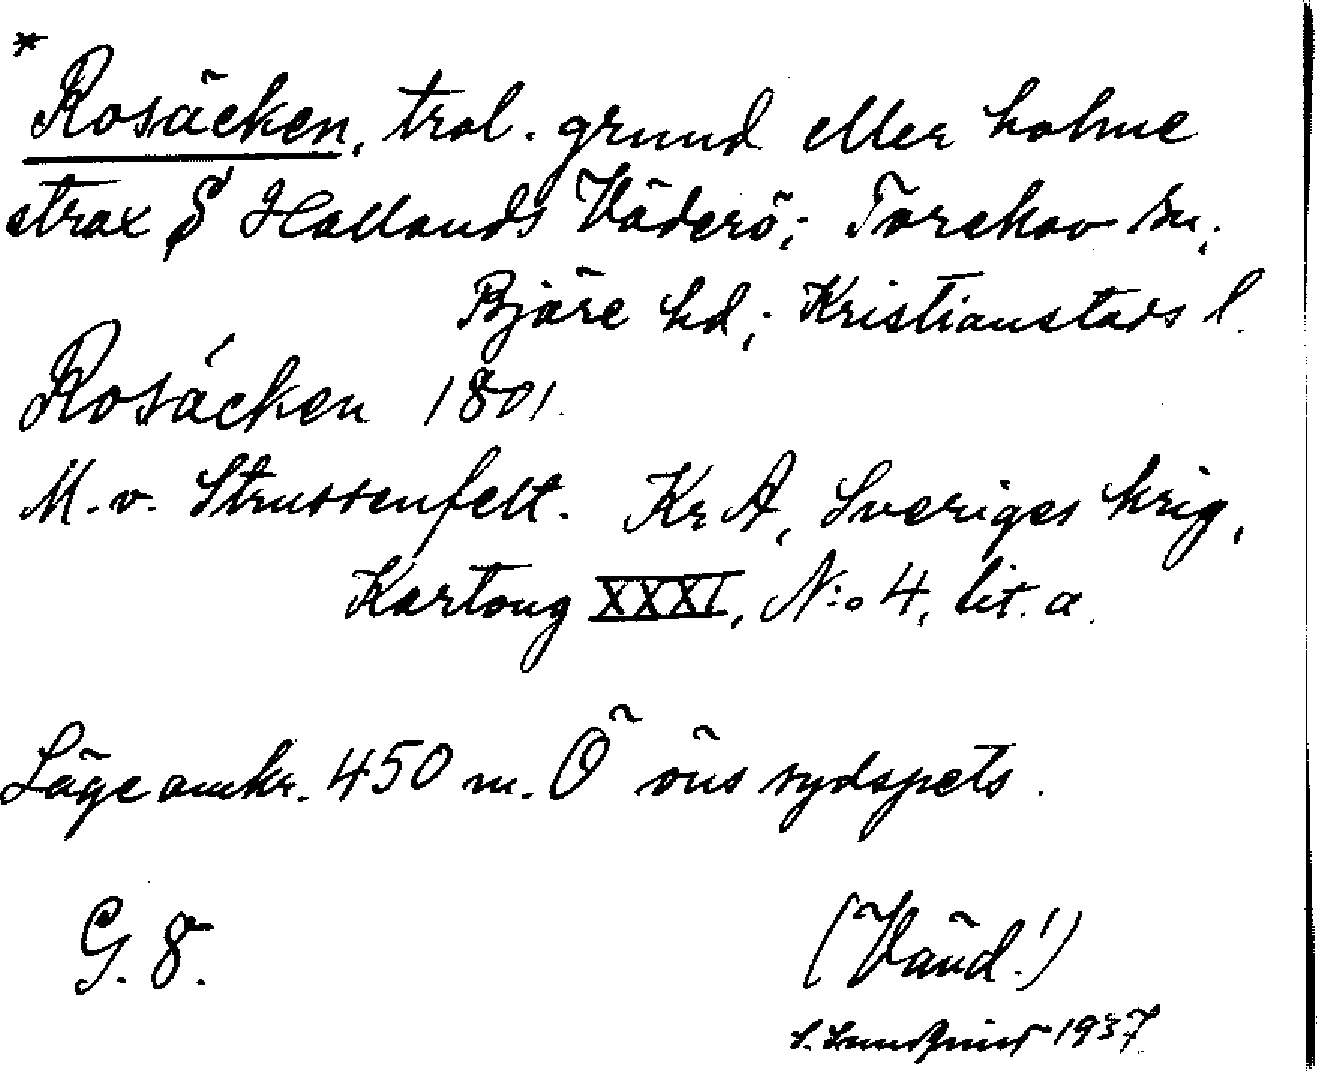 * Rosäcken, trol. grund eller holme
strax S Hallands Väderö; Torekov sn;
Bjäre hd; Kristianstads l.
Rosäcken 1801.
M. v. Strussenfelt. KrA, Sveriges krig,
Kartong XXXI, N:o 4, lit. a.
Läge omkr. 450 m. Ö öns sydspets.
G. 8.
(Vänd!)
S. Lundquist 1937